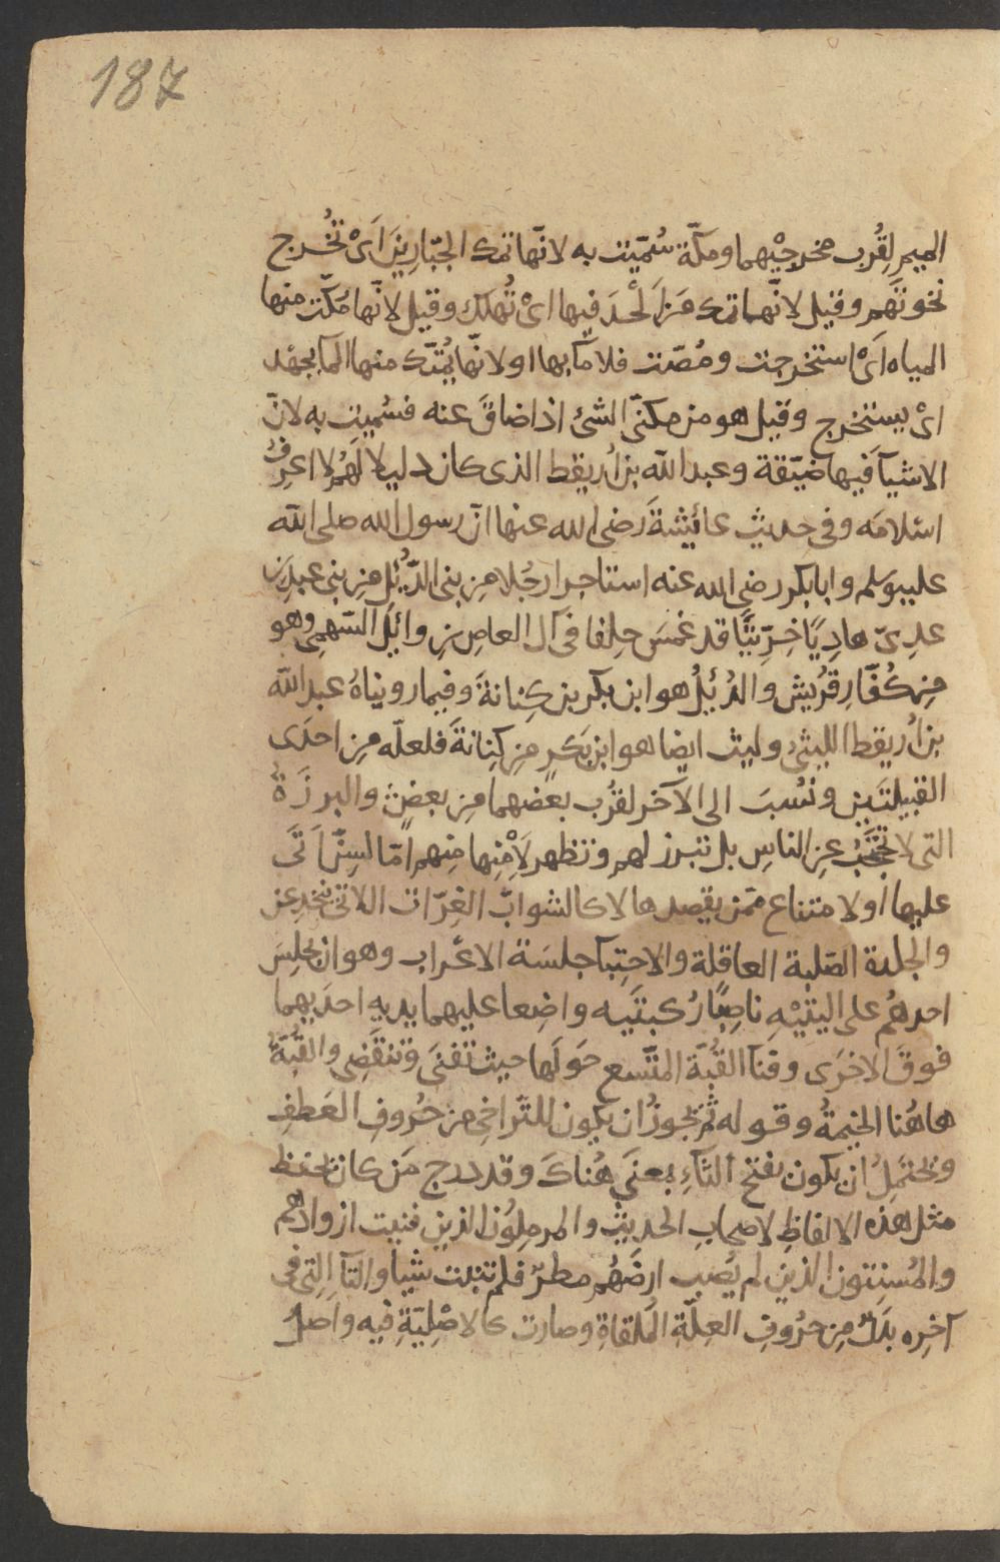 187
الميم لِقُرب مخرجيْهما ومكّة سُمّيت به لانّها تمك الجبّارِينَ اَىْ تخُرج
نخوتَهم وقيل لانّهما تمك مَن اَلْحدَ فيها اىْ تُهلك وقيل لانّها مُكّت منها
المياه اَىْ استخرجت ومُصّت فلا مآ بها او لانّها يُمتك منها المآ بجهد
اىْ يستخرج وقيل هو من مكنّى الشئ اذا ضاقَ عنه فسُميت به لانّ
الاشيآَ فيها ضيّقة وعبد الله بن اُريقط الذى كان دليلا لَهُم لا اعرِفُ
اسْلامَه وفى حديث عائيشةَ رضى الله عنها انّ رسول الله صلى الله
عليه وسلم وابا بكر رضى الله عنه استاجرا رجُلا مِن بنى الدُّئِل مِن بنى عبد بن
عدِىّ هادِيًا خِرّيتًا قد غمسَ حِلفا فى آل العاص بن وائِل السّهمى وهو
مِن كُفّارِ قرُيش والدُئِلُ هو ابن بكر بن كِنانةَ وفيما رويناهُ عبد الله
بن اُريقط الليثىُ وليث ايضا هو ابن بَكرٍ مِن كِنانةَ فلعلّه مِن احدَى
القبيلتَين ونسُبَ الى الآخر لقرُب بعضهما مِن بعضٍ والبرزَةُ
التى لا تحجَّبُ عن الناسِ بل تبرز لهم وتظهر لاَمْنِها مِنهم امّا لسِنٍّ اَتَى
عليها اَو لامتناع ممّن يقصدها لا كالشوابّ الغِرّات اللاتى ينخدعن
والجلدة الصّلبة العاقلة والاحتِبآ جلسَة الاعْراب وهو ان يجلِسَ
احدهُم على اليتيْهِ ناصِبًا رُكبتَيه واضِعا عليهما يديهِ احدَيهما
فوقَ الاخرَى وفنآ القُبّة المتّسع حَولَها حيث تفنَى وتنقَضِى والقبّةُ
هاهُنا الخيمةُ وقوله ثمّ يجوزُ ان يكون للتّراخى من حُروفِ العَطفِ
ويحتمَلُ ان يكون بفتح الثآءِ بمعنَى هُناكَ وقد درج مَن كان يحفظ
مثل هذه الالفاظِ لاصحابِ الحديثِ والمرمِلُونَ الذين فنيت ازوادهم
والمُسنِتون الذين لم يُصِب ارضَهُم مطرٌ فلم تنبت شيا والتآ التِى فى
آخِره بدَلٌ مِن حرُوفِ العِلّةِ المُلقاةِ وصارت كالاصْلِيّةِ فيه واصلُ